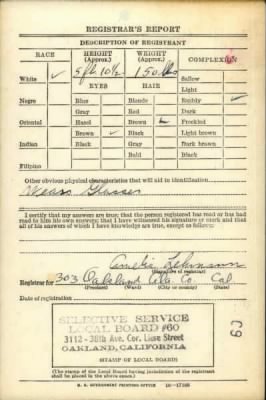 REGISTRAR'S REPORT
DESCRIPTION OF REGISTRANT
RACE HEIGHT (Approx.) WEIGHT (Approx.) COMPLEXION
White ✓ 5 ft. 10½ 150 lbs Sallow
EYES HAIR Light
Negro Blue Blonde Ruddy ✓
Gray Red Dark
Oriental Hazel Brown ✓ Freckled
Brown ✓ Black Light brown
Indian Black Gray Dark brown
Bald Black
Filipino
Other obvious physical characteristics that will aid in identification
Wears Glasses
I certify that my answers are true; that the person registered has read or has had
read to him his own answers; that I have witnessed his signature or mark and that
all of his answers of which I have knowledge are true, except as follows:
Amelia Lehmann
(Signature of registrar)
Registrar for 303 Oakland Ala. Co. Cal
(Precinct) (Ward) (City or county) (State)
Date of registration
SELECTIVE SERVICE
LOCAL BOARD #60
3112 - 38th Ave. Cor. Liese Street
OAKLAND, CALIFORNIA
(STAMP OF LOCAL BOARD)
(The stamp of the Local Board having jurisdiction of the registrant
shall be placed in the above space.)
U. S. GOVERNMENT PRINTING OFFICE